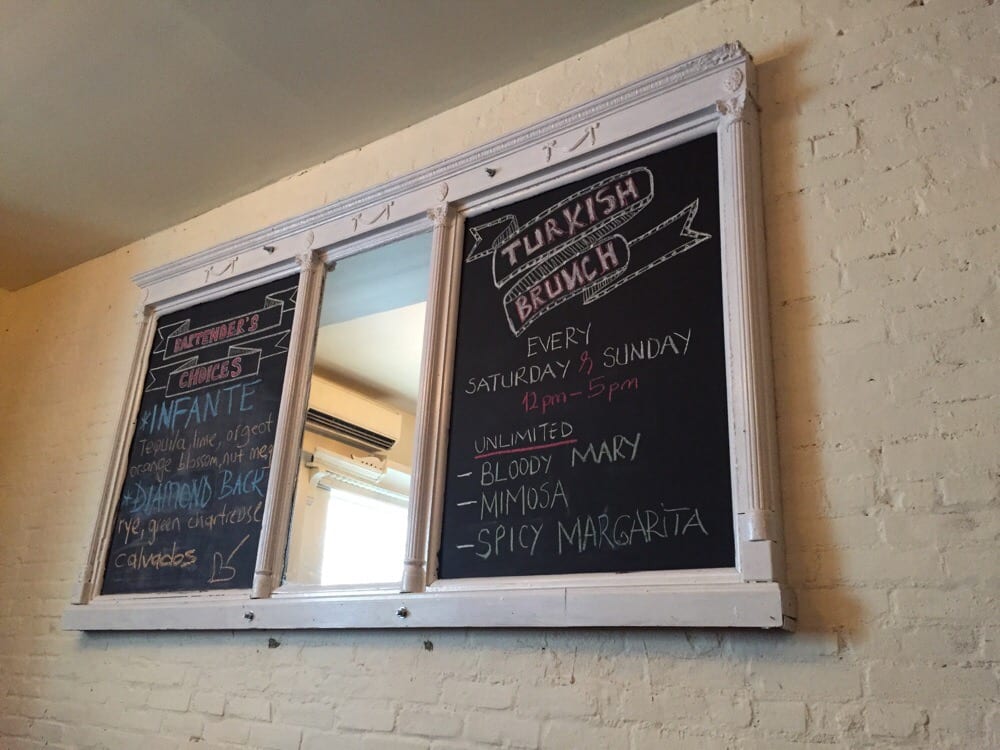 BARTENDER'S
CHOICES
*INFANTE
Tequila, lime, orgeat
orange blossom, nut meg
*DIAMOND BACK
rye, green chartreuse
calvados
TURKISH
BRUNCH
EVERY
SATURDAY & SUNDAY
12pm - 5pm
UNLIMITED
- BLOODY MARY
- MIMOSA
- SPICY MARGARITA